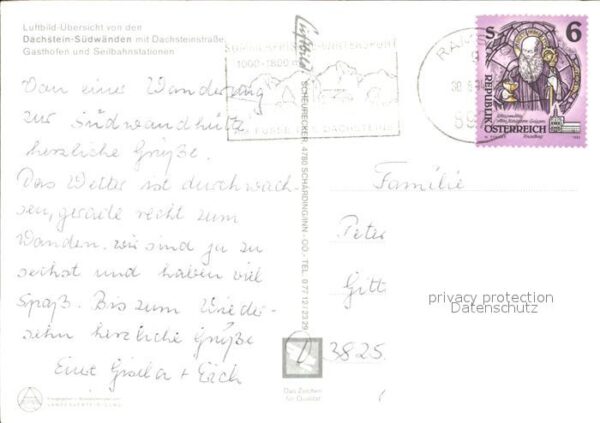 Luftbild-Übersicht von den
Dachstein-Südwänden mit Dachsteinstraße,
Gasthöfen und Seilbahnstationen
Von einer Wanderung
zur Südwandhütte
herzliche Grüße.
Das Wetter ist durchwach-
sen, gerade recht zum
Wandern. wir sind ja zu
sechst und haben viel
Spaß. Bis zum Wieder-
sehn herzliche Grüße
Eure Gisela + Erich
Luftbild
SCHEURECKER, 4780 SCHÄRDING/INN - OÖ. - TEL. 0 77 12 / 23 29
1000-1800 m
FUSSE DES DACHSTEINS
S 6
REPUBLIK
ÖSTERREICH
Familie
Peter
Gitt
privacy protection
Datenschutz
D 3825
Das Zeichen
für Qualität